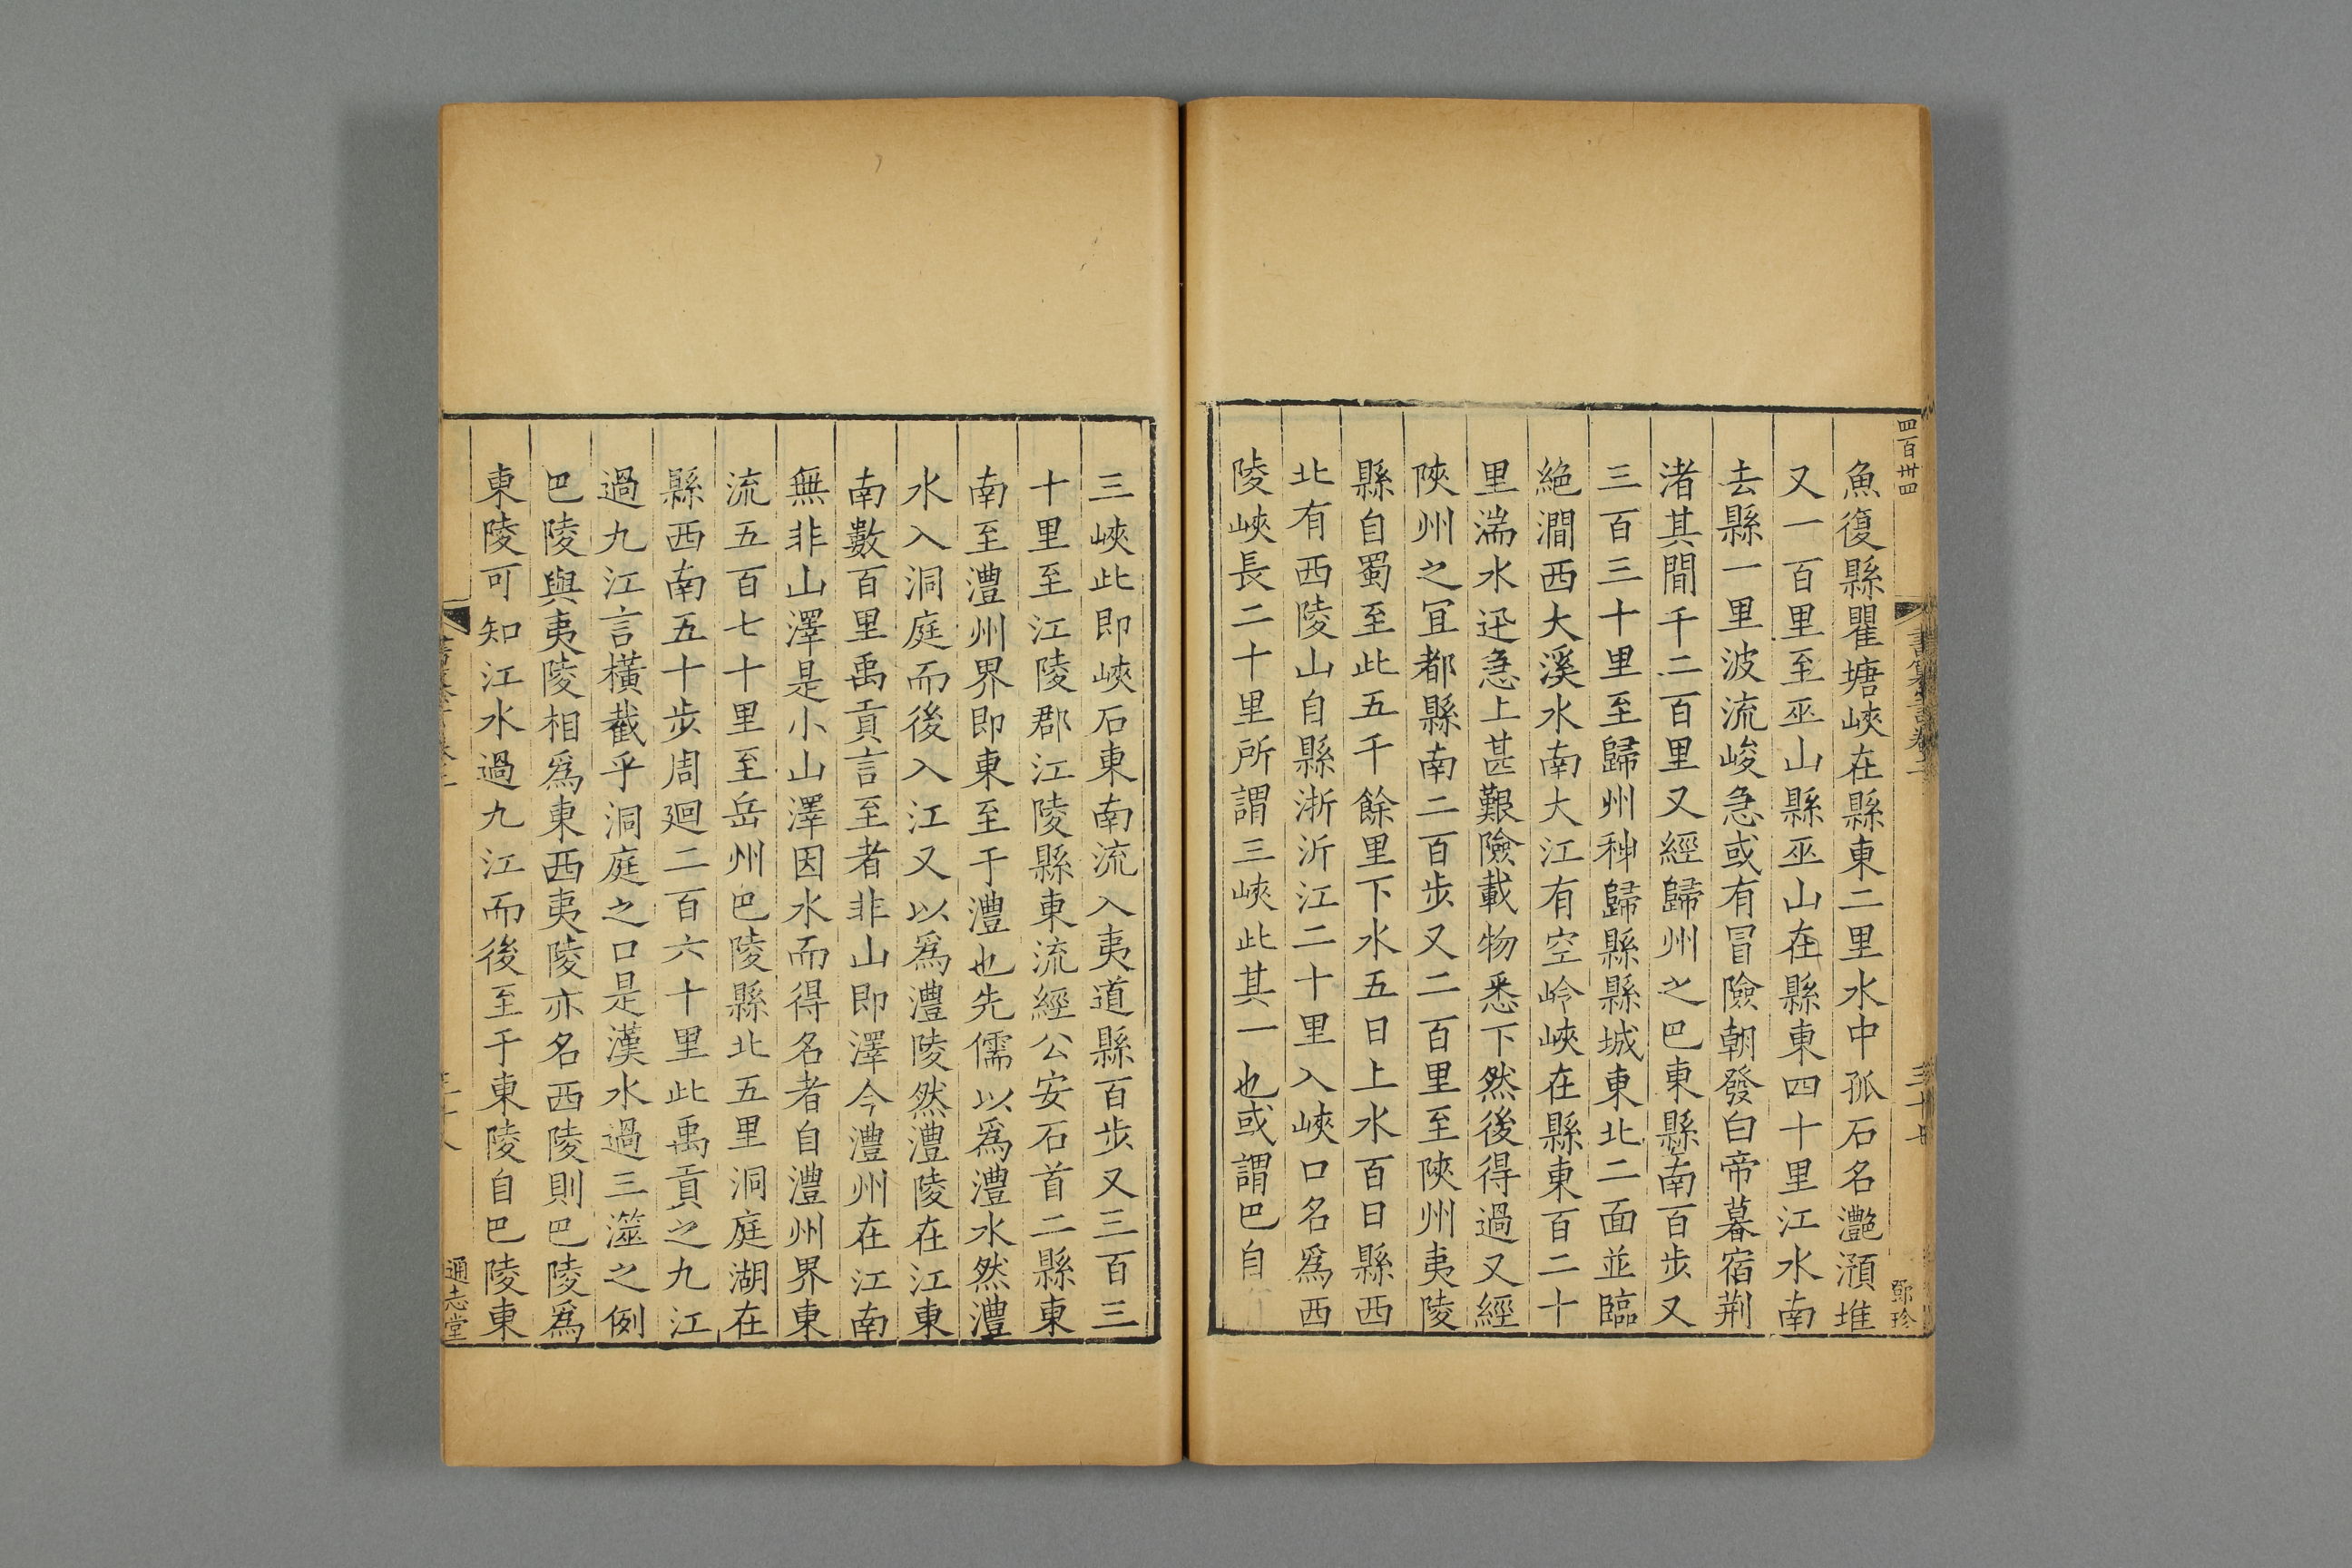 四百卅四
魚復縣瞿塘峽在縣東二里水中孤石名灧澦堆
又一百里至巫山縣巫山在縣東四十里江水南
去縣一里波流峻急或有冒險朝發白帝暮宿荆
渚其間千二百里又經歸州之巴東縣南百步又
三百三十里至歸州秭歸縣縣城東北二面並臨
絶澗西大溪水南大江有空岭峽在縣東百二十
里湍水迅急上甚艱險載物悉下然後得過又經
陝州之宜都縣南二百步又二百里至陝州夷陵
縣自蜀至此五千餘里下水五日上水百日縣西
北有西陵山自縣浙沂江二十里入峽口名爲西
陵峽長二十里所謂三峽此其一也或謂巴自
三峽此即峽石東南流入夷道縣百步又三百三
十里至江陵郡江陵縣東流經公安石首二縣東
南至澧州界即東至于澧也先儒以爲澧水然澧
水入洞庭而後入江又以爲澧陵然澧陵在江東
南數百里禹貢言至者非山即澤今澧州在江南
無非山澤是小山澤因水而得名者自澧州界東
流五百七十里至岳州巴陵縣北五里洞庭湖在
縣西南五十步周廻二百六十里此禹貢之九江
過九江言橫截乎洞庭之口是漢水過三澨之例
巴陵與夷陵相爲東西夷陵亦名西陵則巴陵爲
東陵可知江水過九江而後至于東陵自巴陵東
通志堂